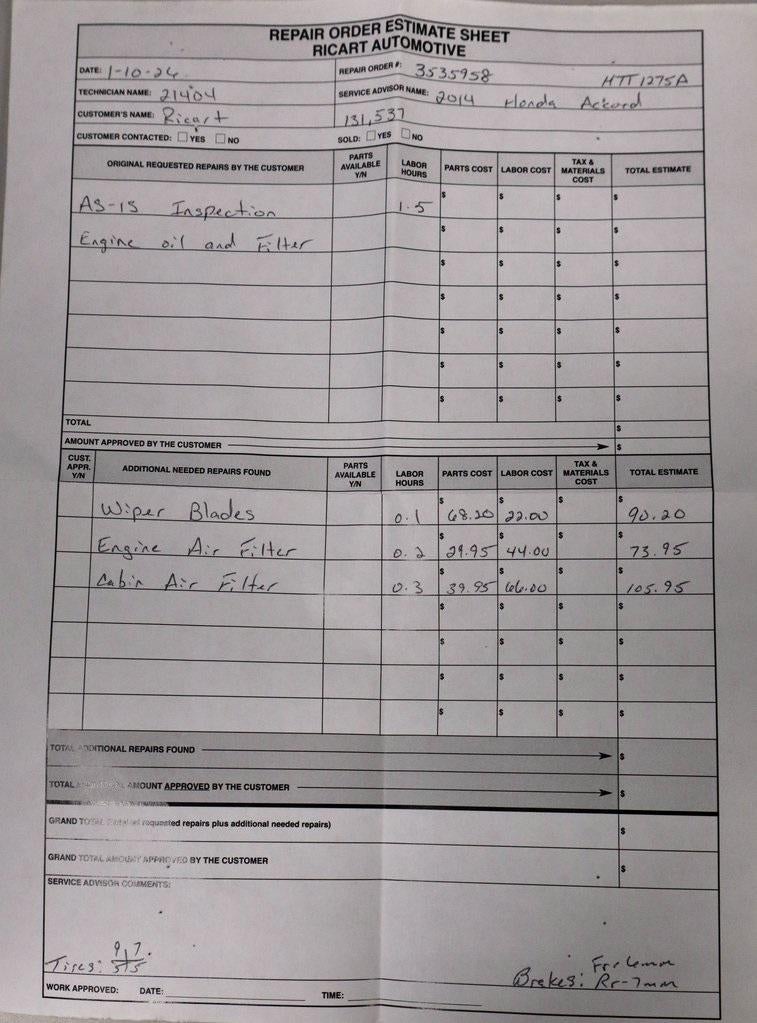 REPAIR ORDER ESTIMATE SHEET
RICART AUTOMOTIVE
DATE: 1-10-24 REPAIR ORDER #: 3535958 HTT1275A
TECHNICIAN NAME: 21404 SERVICE ADVISOR NAME: 2014 Honda Accord
CUSTOMER'S NAME: Ricart 131,537
CUSTOMER CONTACTED: YES NO SOLD: YES NO
ORIGINAL REQUESTED REPAIRS BY THE CUSTOMER PARTS AVAILABLE Y/N LABOR HOURS PARTS COST LABOR COST TAX & MATERIALS COST TOTAL ESTIMATE
AS-IS Inspection 1.5 $ $ $ $
Engine oil and Filter $ $ $ $
$ $ $ $
$ $ $ $
$ $ $ $
$ $ $ $
$ $ $ $
TOTAL $
AMOUNT APPROVED BY THE CUSTOMER $
CUST. APPR. Y/N ADDITIONAL NEEDED REPAIRS FOUND PARTS AVAILABLE Y/N LABOR HOURS PARTS COST LABOR COST TAX & MATERIALS COST TOTAL ESTIMATE
Wiper Blades 0.1 $68.20 $22.00 $ $90.20
Engine Air Filter 0.2 $29.95 $44.00 $ $73.95
Cabin Air Filter 0.3 $39.95 $66.00 $ $105.95
$ $ $ $
$ $ $ $
$ $ $ $
$ $ $ $
TOTAL ADDITIONAL REPAIRS FOUND $
TOTAL AMOUNT APPROVED BY THE CUSTOMER $
GRAND TOTAL requested repairs plus additional needed repairs) $
GRAND TOTAL AMOUNT APPROVED BY THE CUSTOMER $
SERVICE ADVISOR COMMENTS:
Tires: 9 7
5 5
Brakes: Fr-6mm
Rr-7mm
WORK APPROVED: DATE: TIME: